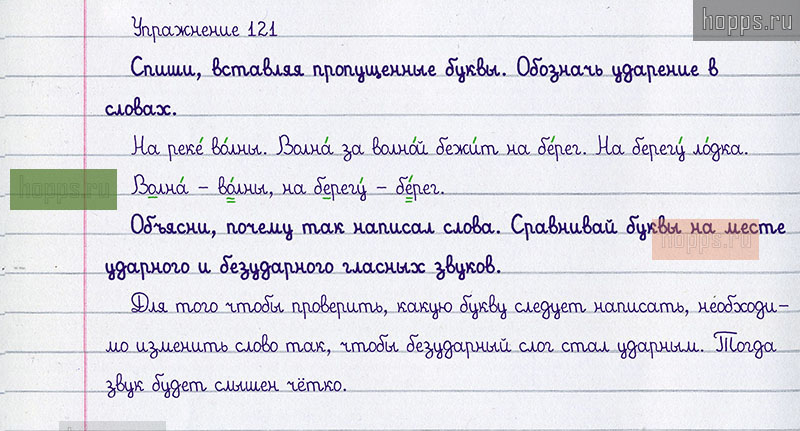 hopps.ru
Упражнение 121
Спиши, вставляя пропущенные буквы. Обозначь ударение в
словах.
На реке́ во́лны. Волна́ за волно́й бежи́т на бе́рег. На берегу́ ло́дка.
hopps.ru
Волна́ – во́лны, на берегу́ – бе́рег.
Объясни, почему так написал слова. Сравнивай буквы на месте
hopps.ru
ударного и безударного гласных звуков.
Для того чтобы проверить, какую букву следует написать, необходи-
мо изменить слово так, чтобы безударный слог стал ударным. Тогда
звук будет слышен чётко.